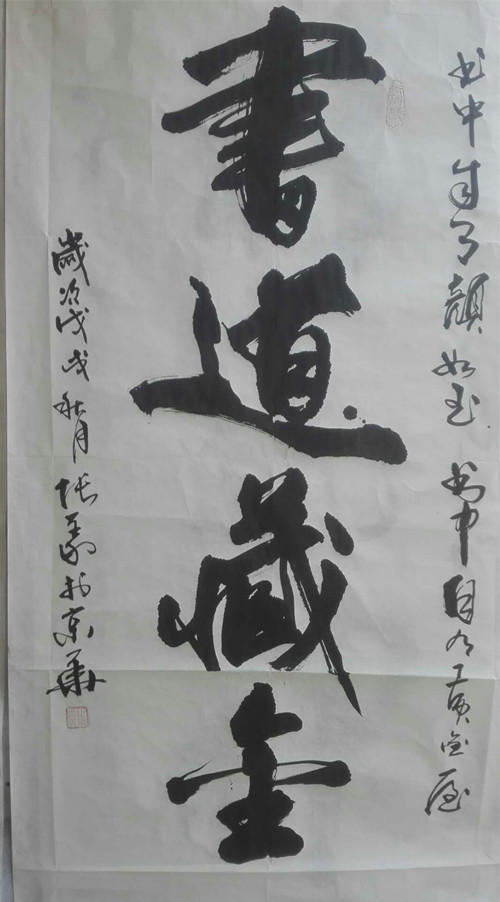 书中自有颜如玉 书中自有黄金屋
書道藏金
歲次戊戌秋月 张 於京華